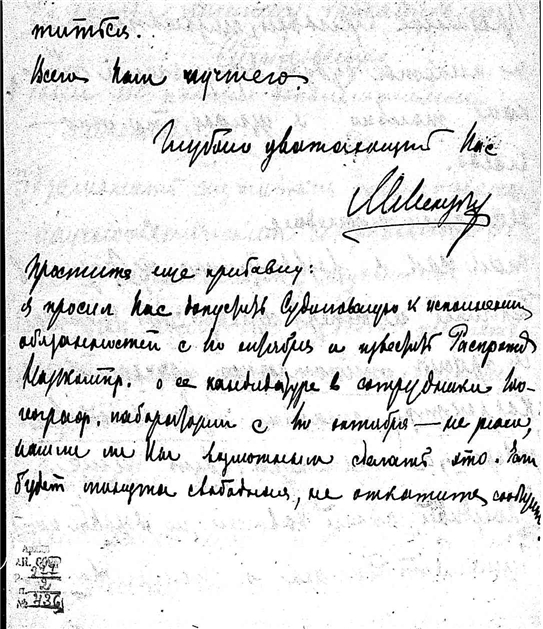 титься.
Всего Вам лучшего.
Глубоко уважающий Вас
Простите еще прибавку:
я просил Вас допустить к исполнению
обязанностей с 1го октября и известить
Наркомпр. о ее кандидатуре в сотрудники
лаборатории с 1го октября — не знаю,
нашли ли Вы возможным сделать это. Если
будет минутка свободная, не откажите сообщить.
АН.
277
2
№ 736